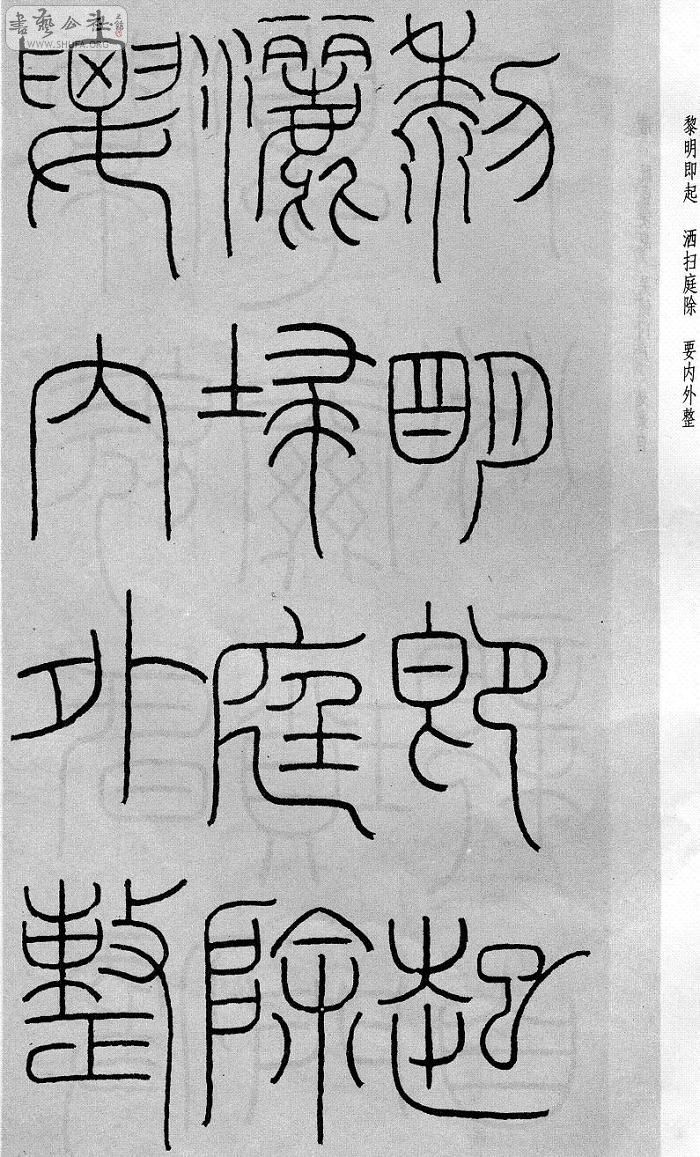 黎明即起
灑埽庭除
要内外整
黎明即起 洒扫庭除 要内外整
書藝公社
WWW.SHUFA.ORG